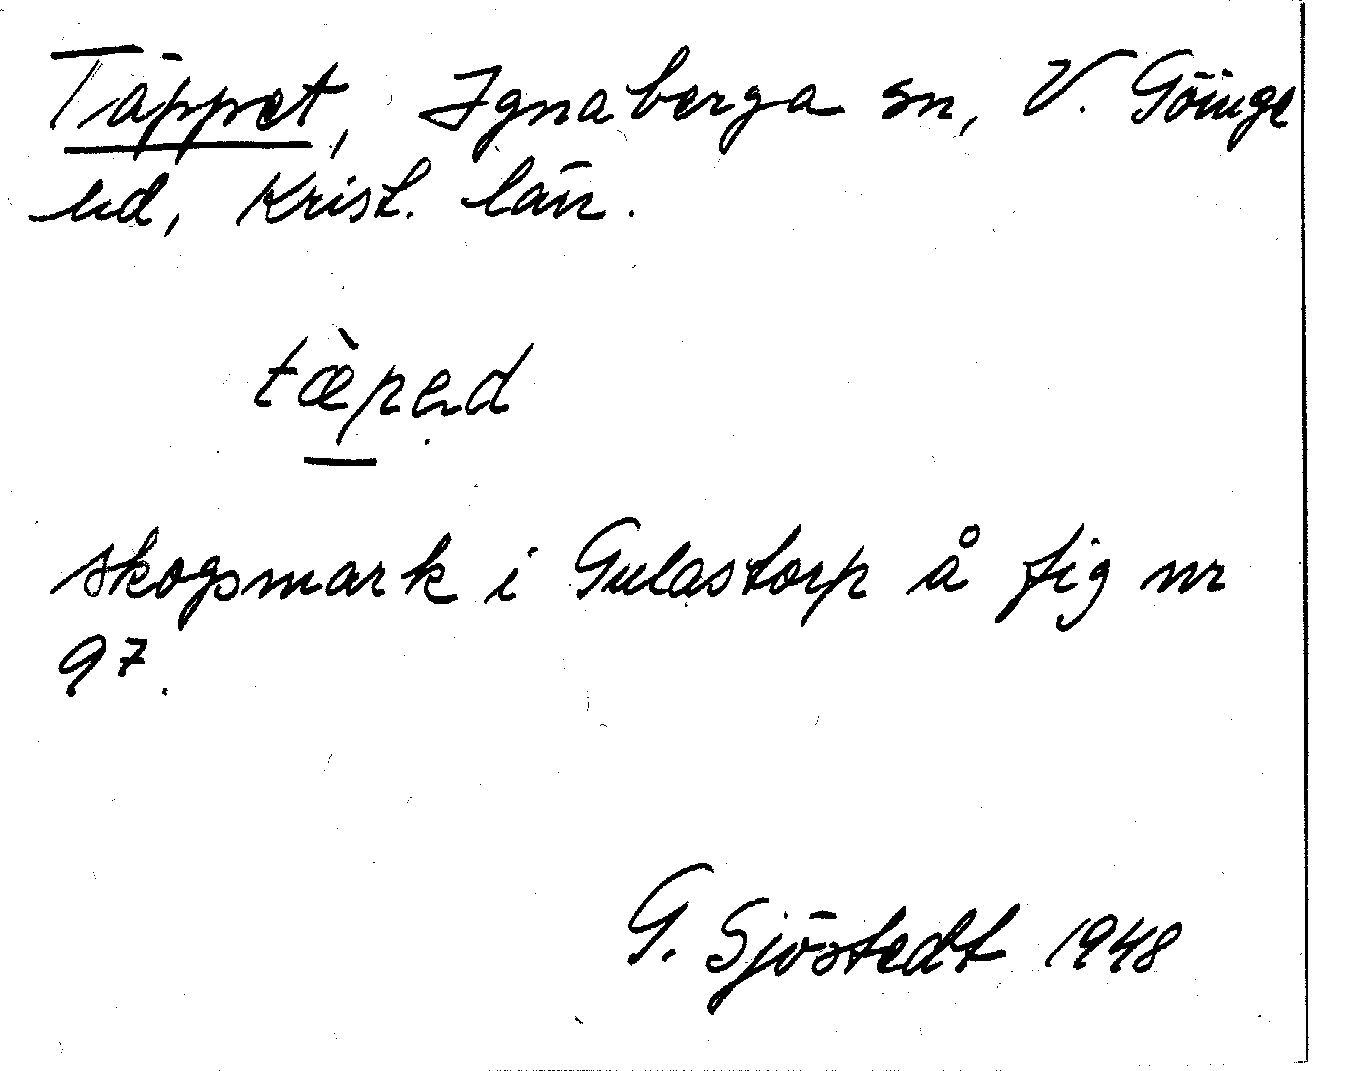 Täppet, Ignaberga sn, V. Göinge
hd, Krist. län.
tæ̀pẹd
skogsmark i Gulastorp å fig nr
97.
G. Sjöstedt 1948